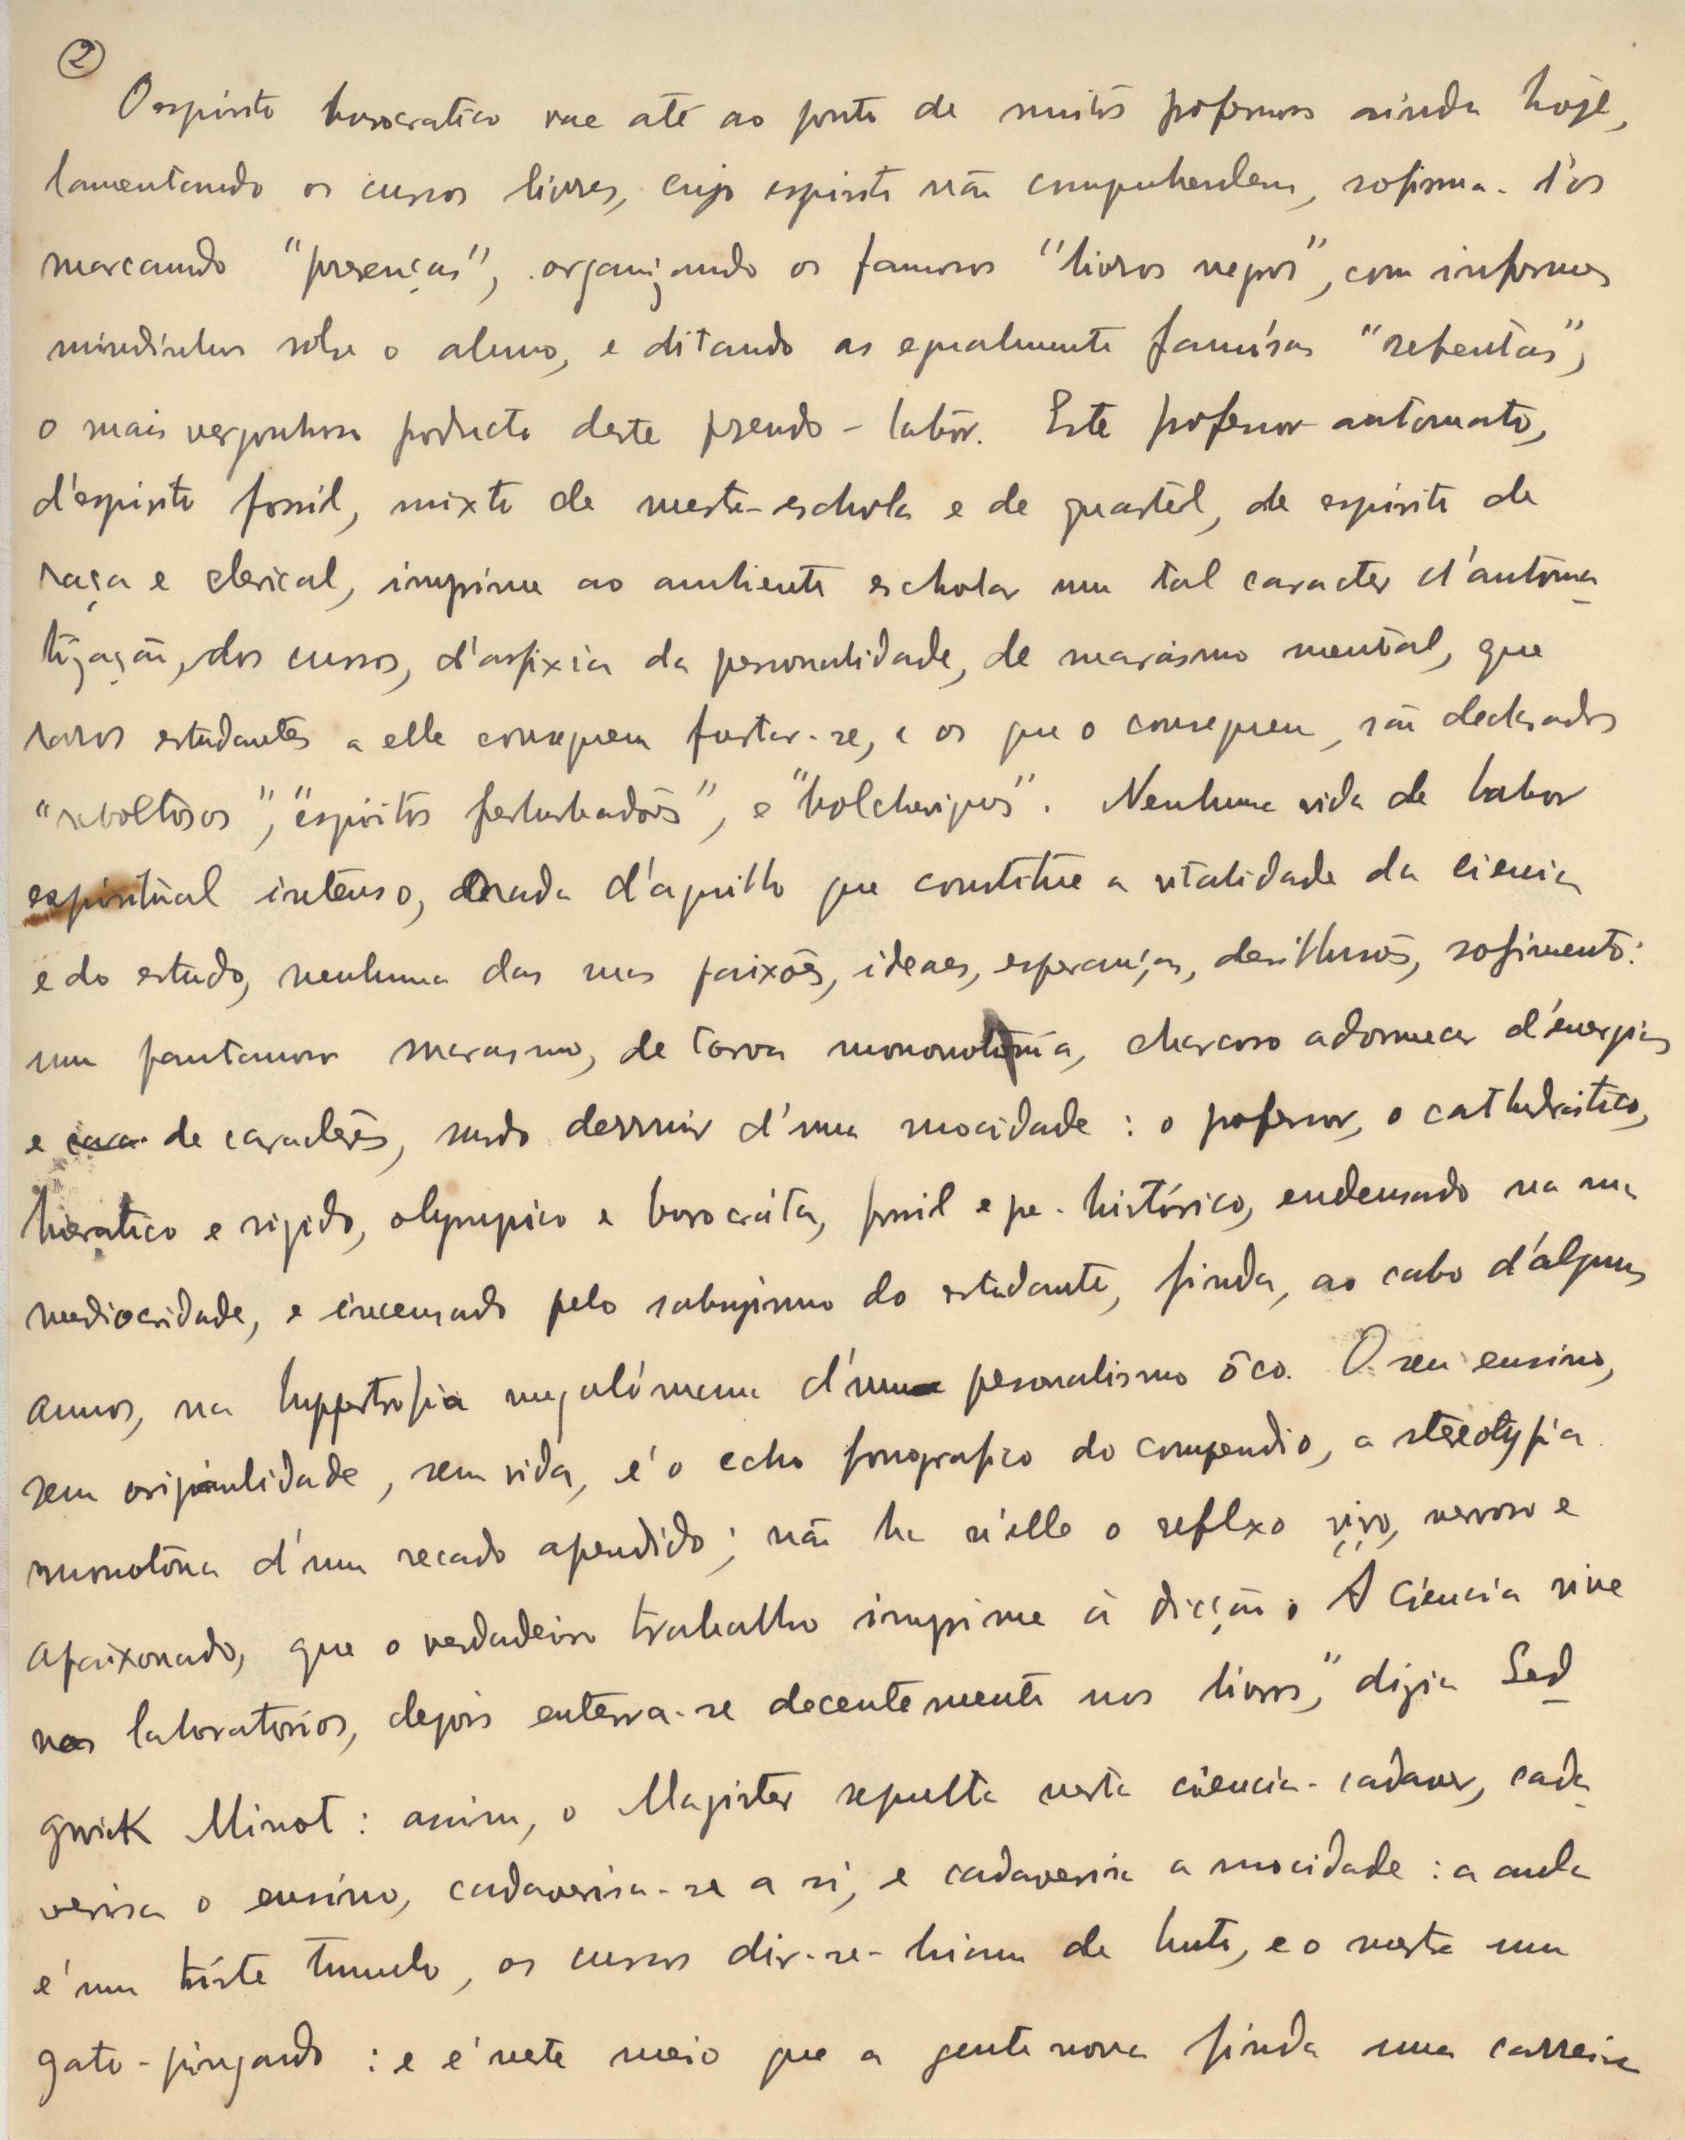 2
O espirito burocratico vae até ao ponto de muitos professores ainda hoje,
lamentando os cursos livres, cujo espirito não comprehendem, sofisma-l'os
marcando "presenças", organizando os famosos "livros negros", com informes
miudinhos sobre o alumno, e ditando as egualmente famósas "sebentas",
o mais vergonhoso producto deste pseudo-labôr. Este professor-automato,
d'espirito fossil, mixto de mestre-eschola e de quartel, de espirito de
raça e clerical, imprime ao ambiente escholar um tal caracter d'automa-
tização, dos cursos, d'asfixia da personalidade, de marasmo mental, que
raros estudantes a elle conseguem furtar-se, e os que o conseguem, são declarados
"revoltosos", "espiritos perturbadores", e "bolcheviques". Nenhuma vida de labor
espiritual intenso, nada d'aquillo que constitue a vitalidade da ciencia
e do estudo, nenhuma das suas paixões, ideaes, esperanças, desillusões, sofrimento:
um pantanoso marasmo, de torva monotonia, charcoso adormecer d'energias
e cara- de caractéres, surdo derruir d'uma mocidade: o professor, o cathedratico,
hieratico e rigido, olympico e burocráta, fossil e pre-histórico, endeusado na sua
mediocridade, e incensado pelo sabujismo do estudante, finda, ao cabo d'alguns
annos, na hyppertrofia megalómana d'um personalismo ôco. O seu ensino,
sem originalidade, sem vida, é o echo fonografico do compendio, a stereotypia
monotóna d'um recado aprendido; não ha n'elle o reflexo vivo, nervoso e
apaixonado, que o verdadeiro trabalho imprime á dicção. "A Ciencia vive
nos laboratorios, depois enterra-se decentemente nos livros," dizia Sed-
gwick Minot: assim, o Magister sepulta nesta ciencia-cadaver, cada-
verisa o ensino, cadaverisa-se a si, e cadaverisa a mocidade: a aula
é um triste tumulo, os cursos dir-se-hiam de luto, e o mestre um
gato-pingardo: e é neste meio que a gente nova finda uma carreira